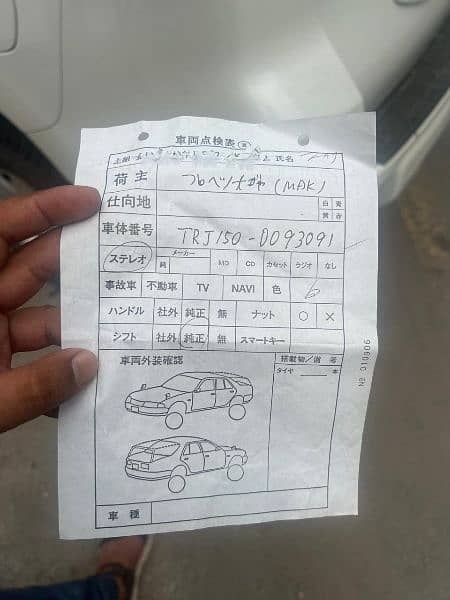 車両点検表
氏名
荷主 (MAK)
仕向地 白 青 黄 赤
車体番号 TRJ150-0093091
ステレオ 純 メーカー MD CD カセット ラジオ なし
事故車 不動車 TV NAVI 色 6
ハンドル 社外 純正 無 ナット ○ ×
シフト 社外 純正 無 スマートキー
車両外装確認 搭載物/備考
タイヤ 本
№ 010906
車種